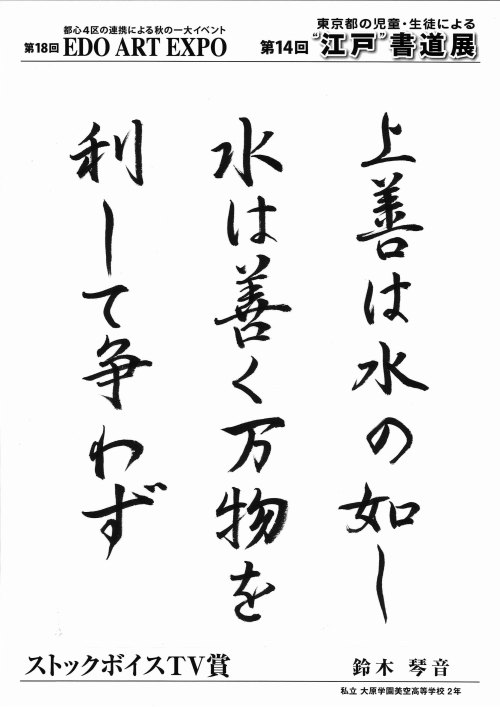 都心4区の連携による秋の一大イベント
第18回 EDO ART EXPO
東京都の児童・生徒による
第14回 “江戸”書道展
上善は水の如し
水は善く万物を
利して争わず
ストックボイスTV賞
鈴木 琴音
私立 大原学園美空高等学校 2年